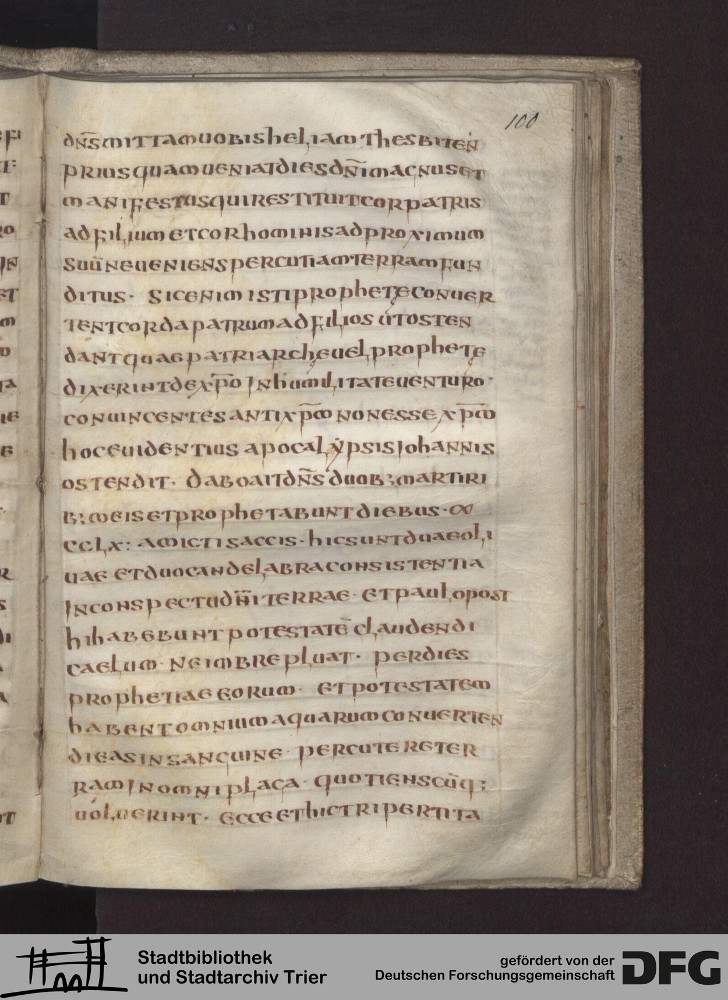 100
dn̅s mittam uobis heliam thesbiten
priusquam ueniat dies dn̅i magnus et
manifestus qui restituit cor patris
ad filium et cor hominis ad proximum
suū ne ueniens percutiam terram fun
ditus · sic enim isti prophetę conuer
tent corda patrum ad filios ut osten
dant quae patriarchę uel prophetę
dixerint de xp̅o In humilitate uenturo ·
conuincentes antixp̅m non esse xp̅m
hoc euidentius apocalypsis Iohannis
ostendit · dabo ait dn̅s duob; martiri
b; meis et prophetabunt diebus · ∞
cclx: amicti saccis · hi sunt duae oli
uae et duo candelabra consistentia
In conspectu dn̅i terrae · et paulo post
hi habebunt potestatē claudendi
caelum · ne imbre pluat · per dies
prophetiae eorum · et potestatem
habent omnium aquarum conuerten
di eas in sanguine · percutere ter
ram In omni plaga · quotienscūq;
uoluerint · ecce et hic tripertita
Stadtbibliothek
und Stadtarchiv Trier
gefördert von der
Deutschen Forschungsgemeinschaft
DFG